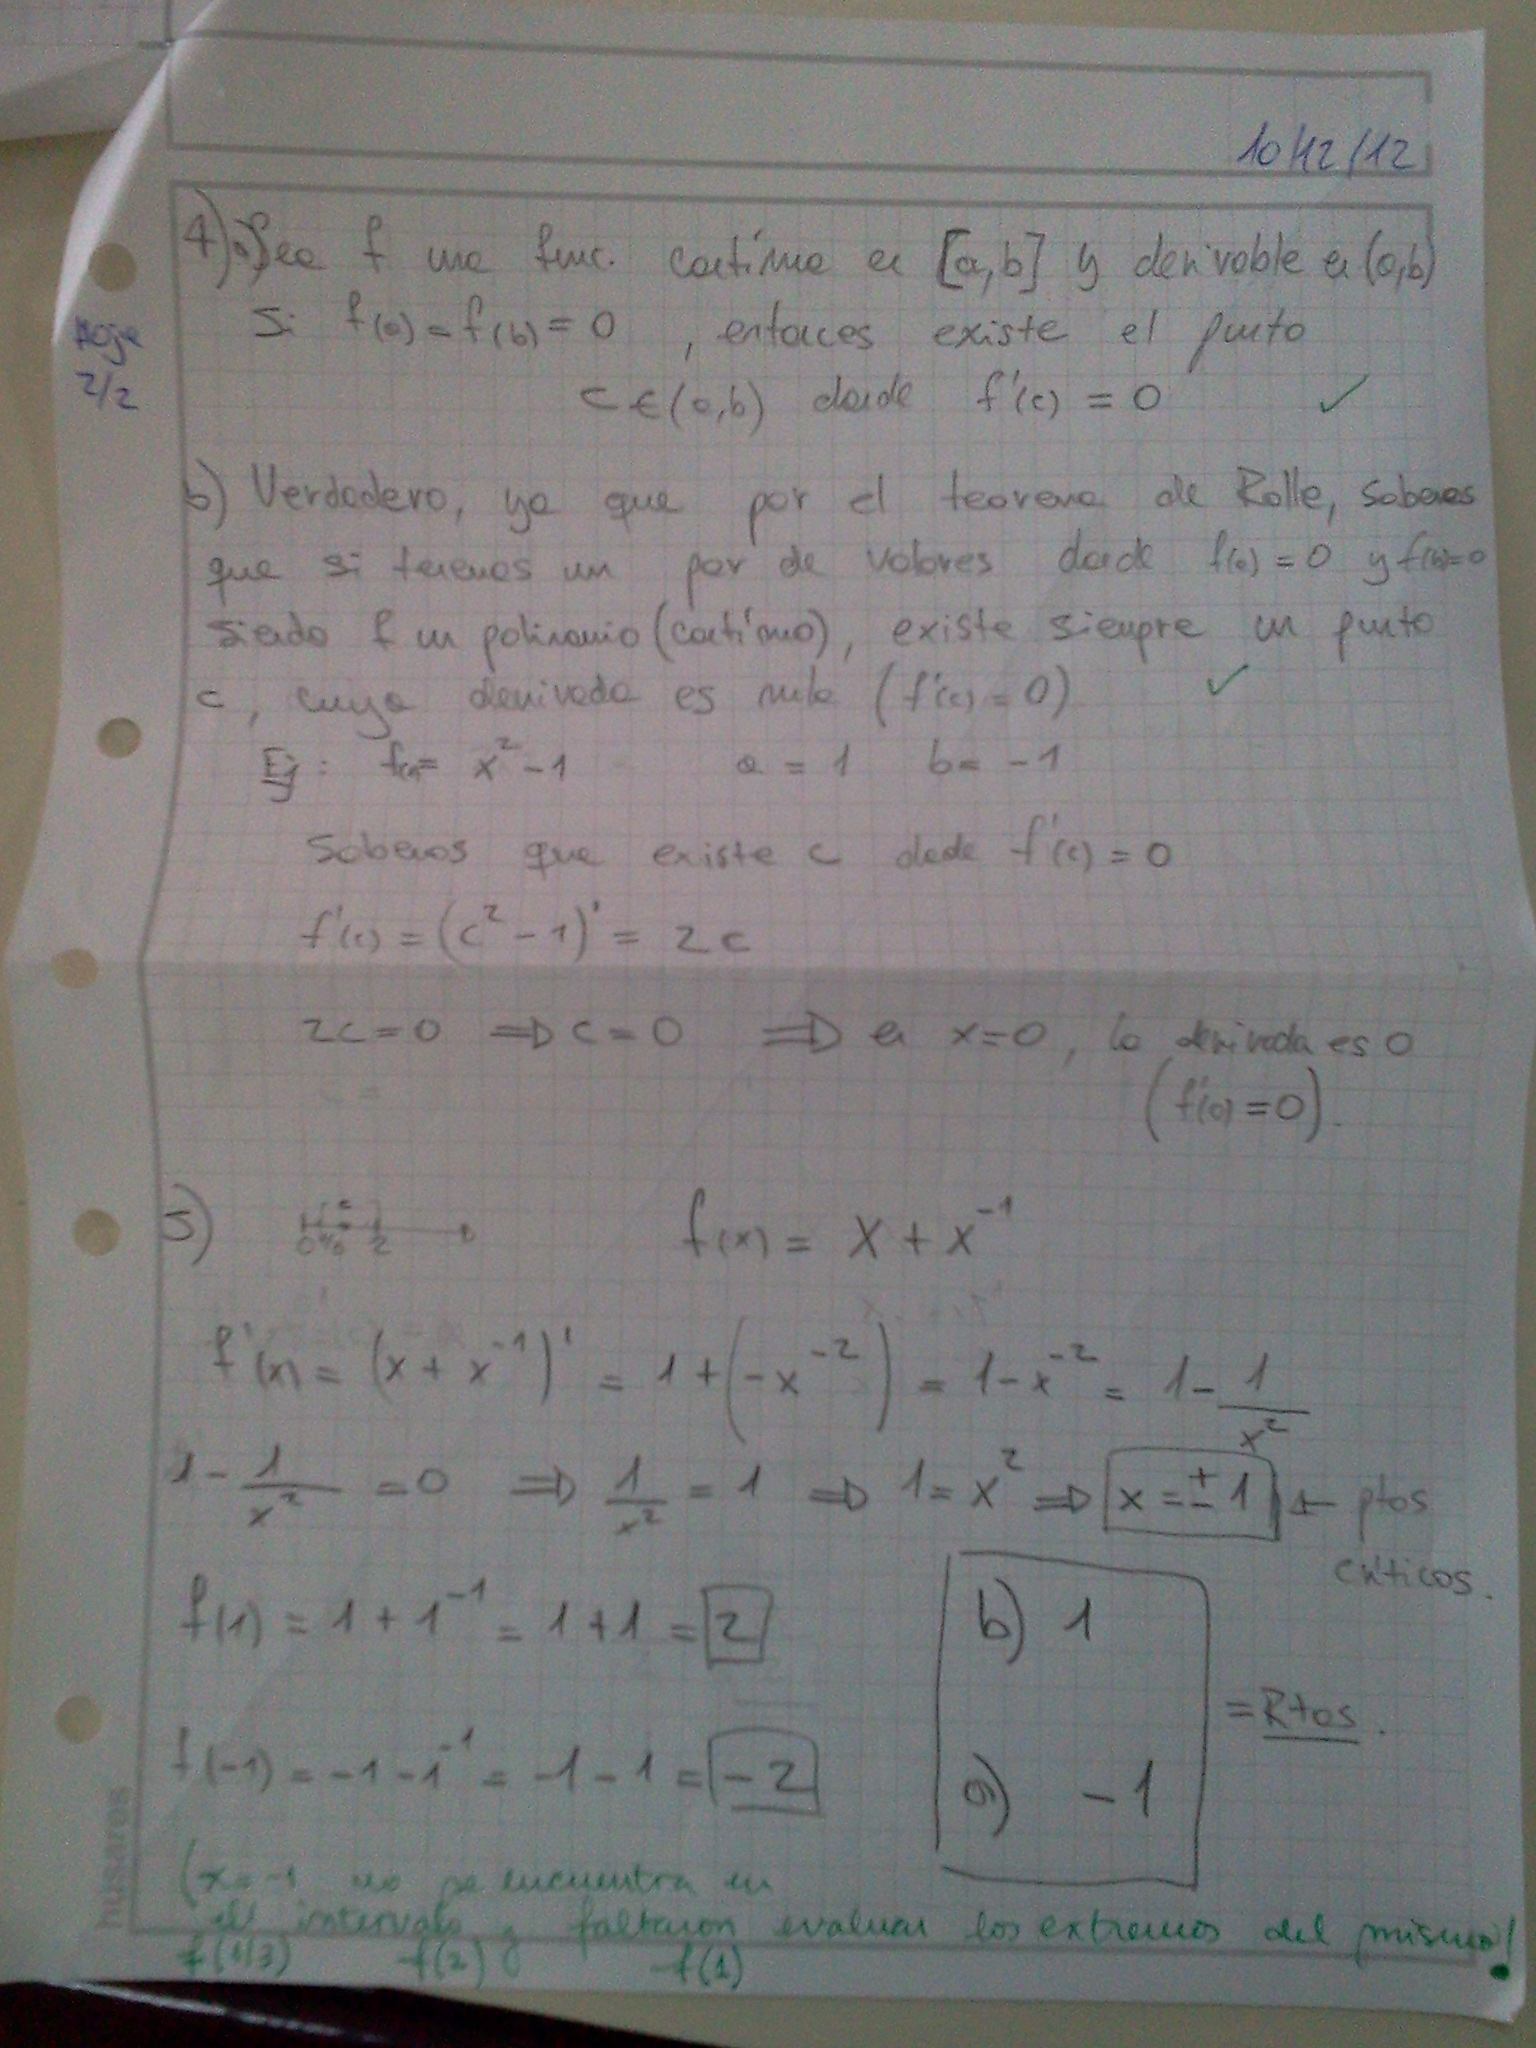 10/12/12
4) a) Sea f una func. continua en [a,b] y derivable en (a,b)
Hoja
2/2
Si f(a) = f(b) = 0 , entonces existe el punto
c ∈ (a,b) donde f'(c) = 0 ✓
b) Verdadero, ya que por el teorema de Rolle, sabemos
que si tenemos un par de valores donde f(a) = 0 y f(b)=0
siendo f un polinomio (continuo), existe siempre un punto
c, cuya derivada es nula (f'(c) = 0) ✓
Ej : f(x)= x² - 1 a = 1 b = -1
Sabemos que existe c donde f'(c) = 0
f'(c) = (c² - 1)' = 2c
2c = 0 ⇒ c = 0 ⇒ en x=0, la derivada es 0
(f'(0) = 0).
5) 0 2 f(x) = x + x⁻¹
f'(x) = (x + x⁻¹)' = 1 + (-x⁻²) = 1 - x⁻² = 1 - 1/x²
1 - 1/x² = 0 ⇒ 1/x² = 1 ⇒ 1 = x² ⇒ x = ±1 ← ptos
críticos.
f(1) = 1 + 1⁻¹ = 1 + 1 = 2
b) 1
= Rtas.
f(-1) = -1 - 1⁻¹ = -1 - 1 = -2
a) -1
(x = -1 no se encuentra en
el intervalo y faltaron evaluar los extremos del mismo!
f(1/3) f(2) f(1)
husares